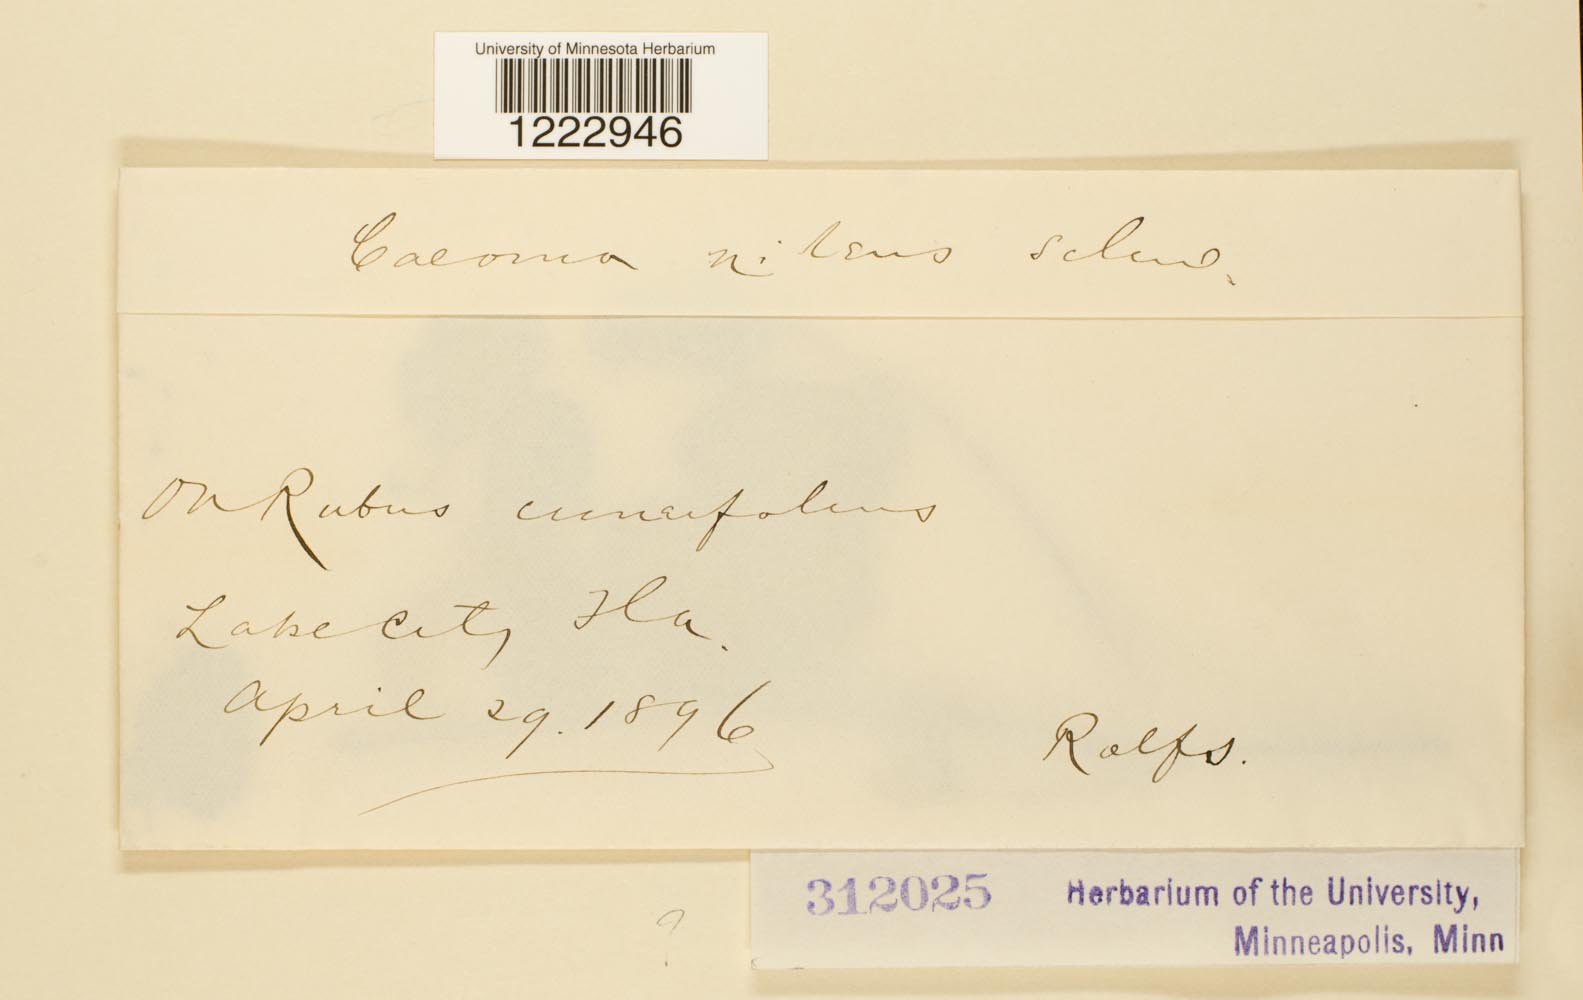 University of Minnesota Herbarium
1222946
Caeoma nitens Schw.
On Rubus cuneifolius
Lake City Fla.
April 29. 1896
Rolfs.
312025 Herbarium of the University,
Minneapolis, Minn
?